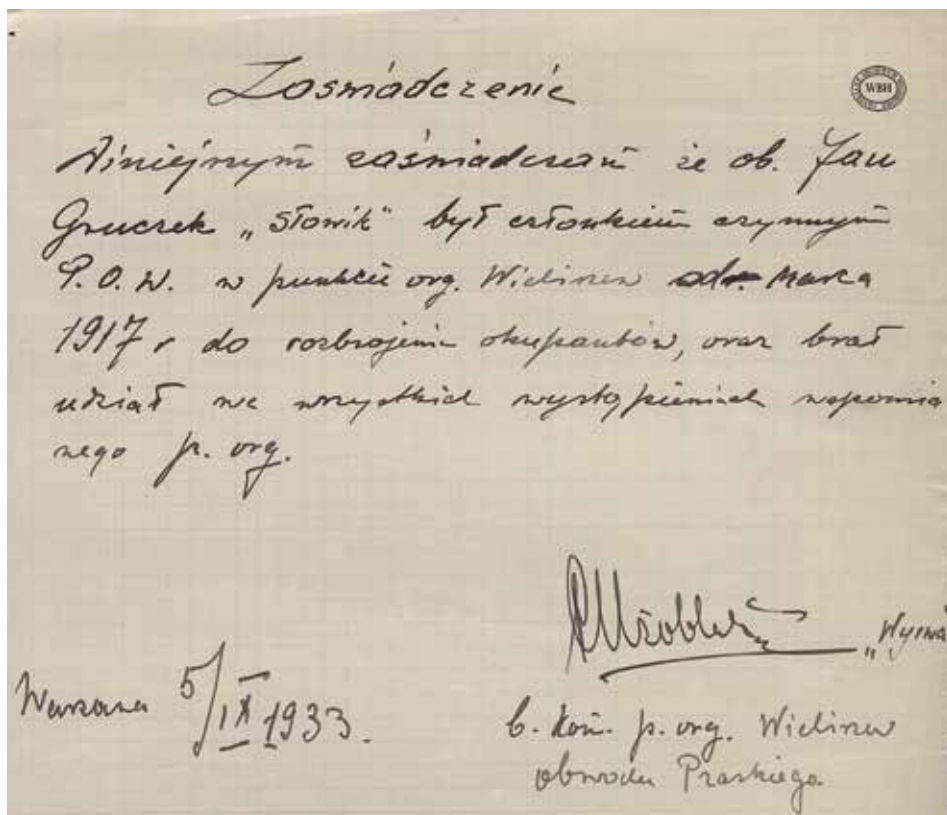 Zaświadczenie
WBH
Niniejszym zaświadczam że ob. Jan
Gruczek „Słowik" był członkiem czynnym
P.O.W. w punkcie org. Wieliszew od marca
1917 r do rozbrojenia okupantów, oraz brał
udział we wszystkich wystąpieniach wspomnia
nego p. org.
„
Warszawa 5/IX 1933.
b. kom. p. org. Wieliszew
obwodu Praskiego